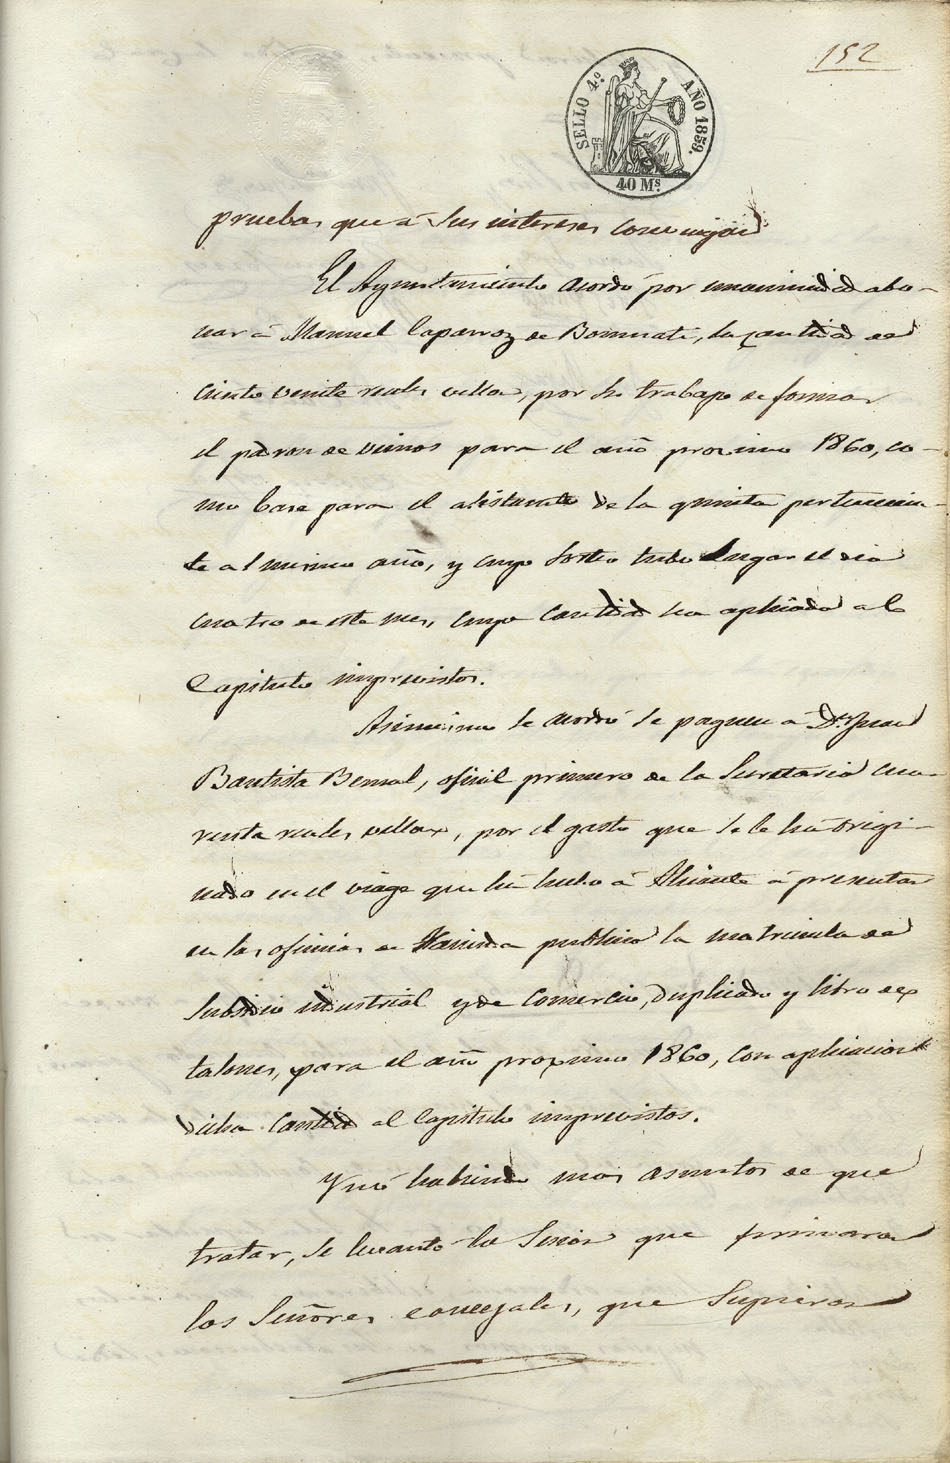 152
SELLO 4.º AÑO 1859.
40 Ms.
pruebas que á sus intereses convenga
El Ayuntamiento acordó por unanimidad abo-
nar á Manuel Caparroz de Bonmati, la cantidad de
ciento veinte reales vellon, por su trabajo de formar
el padron de vecinos para el año proximo 1860, co-
mo base para el alistamto de la quinta pertenecien-
te al mismo año, y cuyo sorteo tubo lugar el dia
cuatro de este mes, cuya cantidad sea aplicada al
Capitulo imprevistos.
Asimismo se acordó se paguen á Dn Juan
Bautista Bernal, oficial primero de la Secretaria cua-
renta reales vellon, por el gasto que se le ha origi-
nado en el viage que há hecho á Alicante á presentar
en las oficinas de Hacienda publica la matricula de
Subsidio industrial y de comercio, duplicado y libro de
talones, para el año proximo 1860, con aplicacion
dicha cantidad al Capitulo imprevistos.
Y no habiendo mas asuntos de que
tratar, se levantó la Sesion que firmaron
los Señores concejales, que supieron